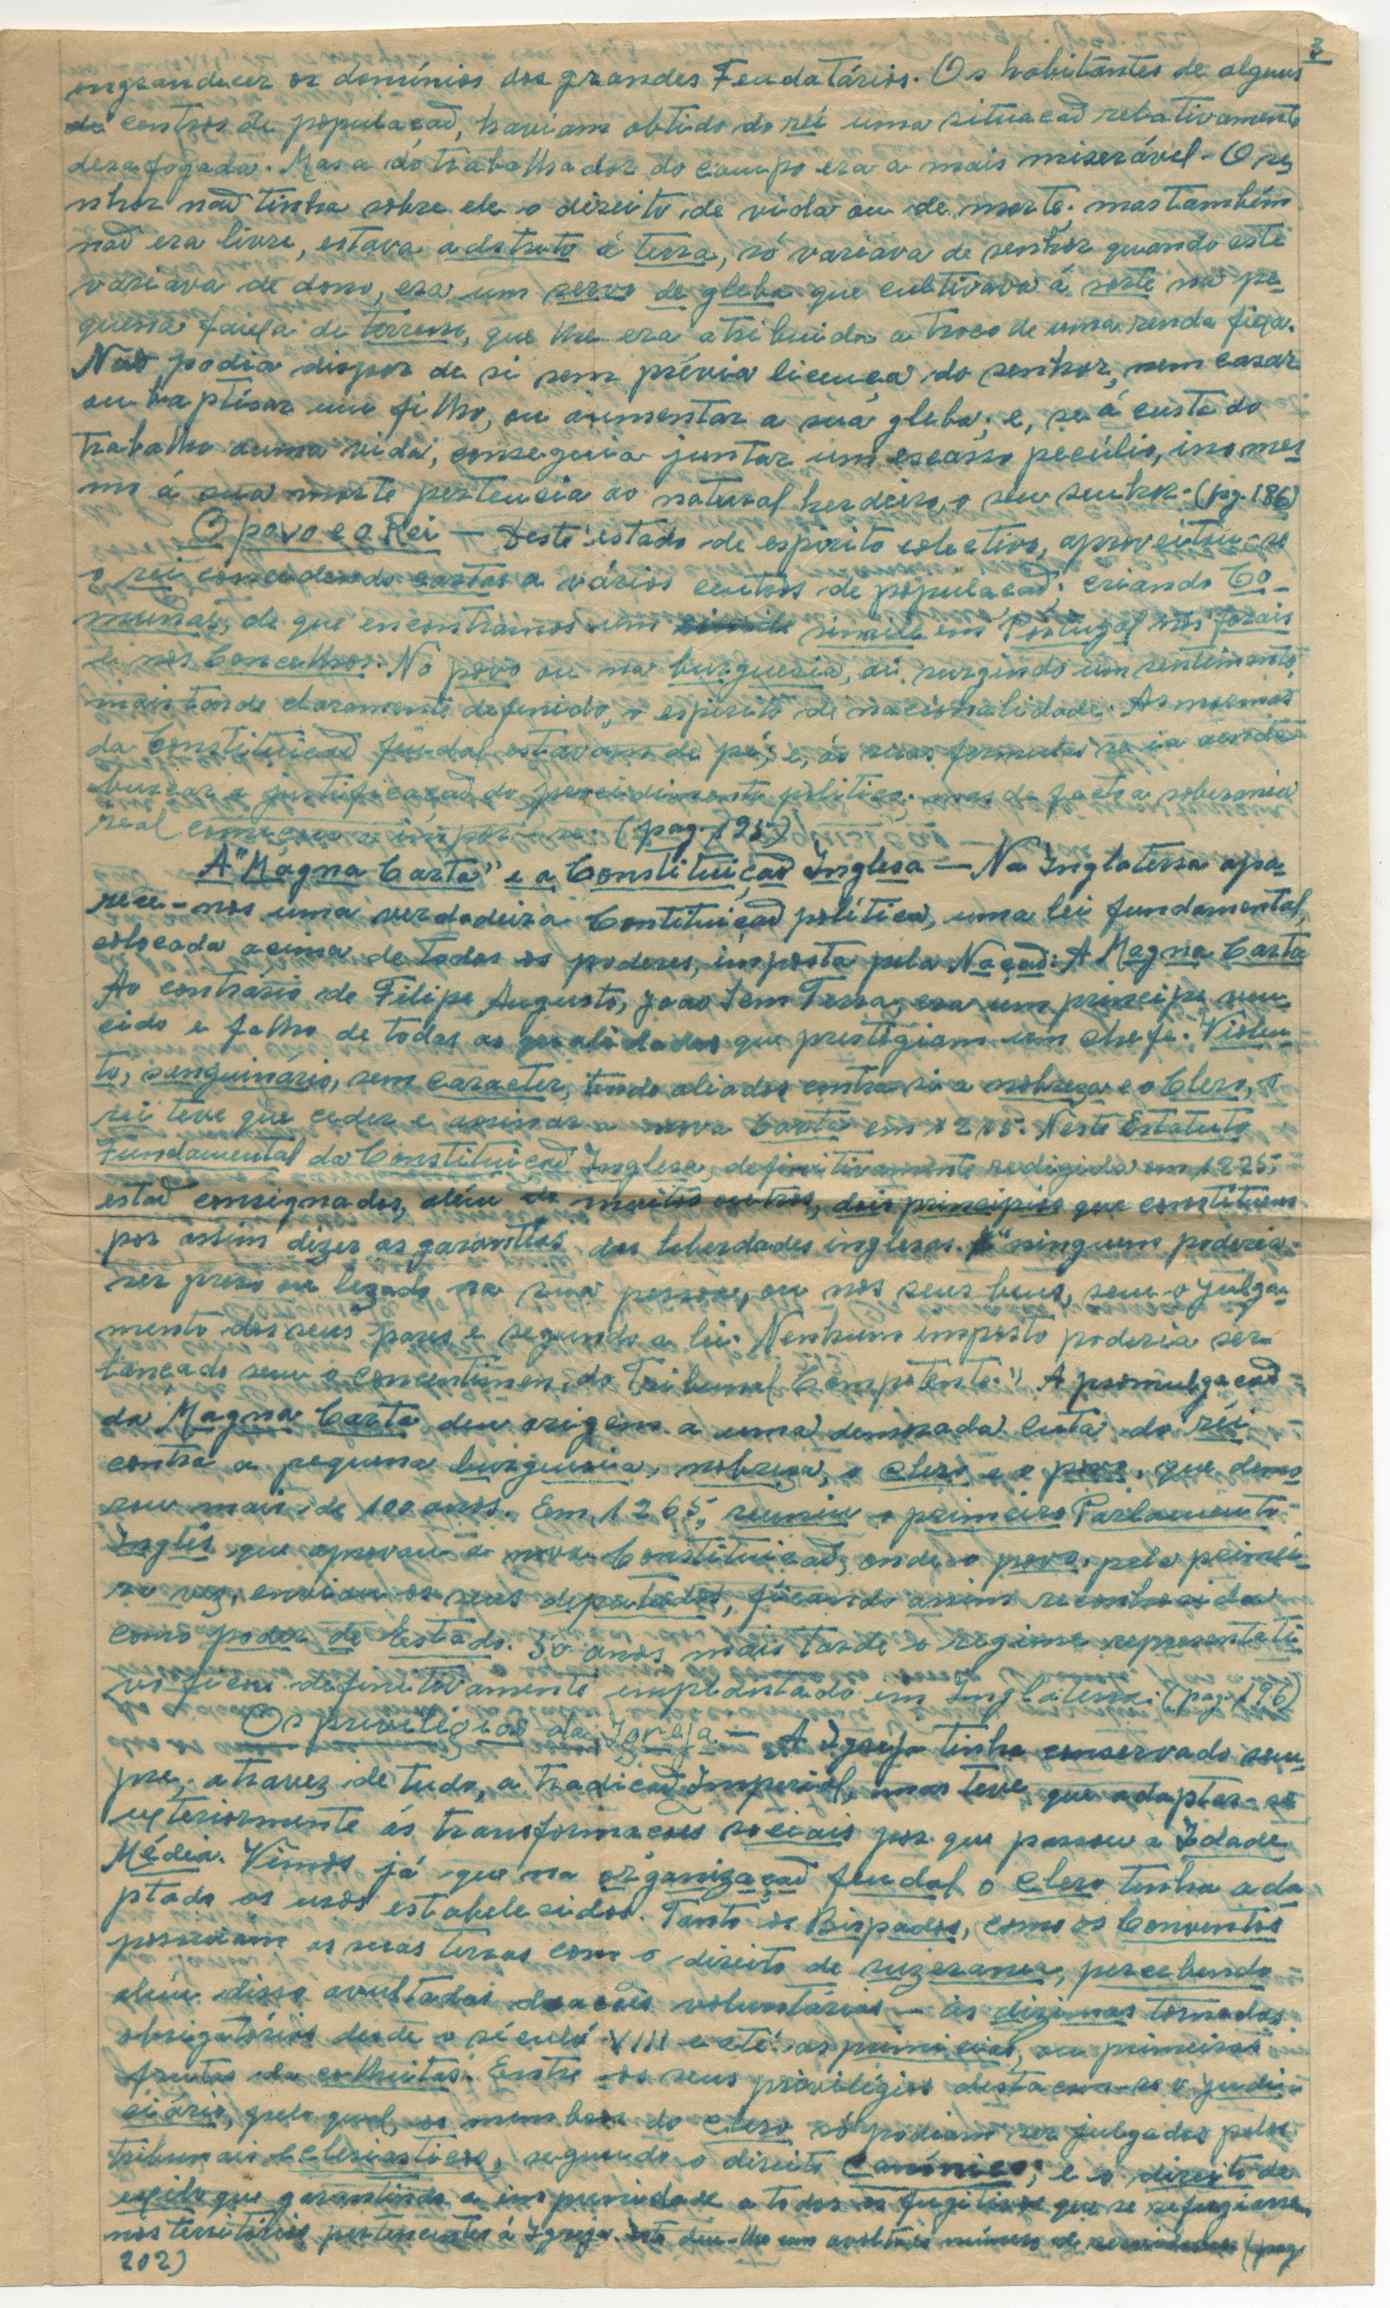 3
engrandecer os domínios dos grandes Feudatários. Os habitantes de alguns
de centros de populacaõ, haviam obtido do rei uma situacaõ relativamente
desafogada. Mas a do trabalhador do campo era a mais miserável. O se
nhor naõ tinha sobre ele o direito de vida ou de morte. mas também
naõ era livre, estava adstrito á terra, só variava de senhor quando este
variava de dono, era um servo de gleba que cultivava á sorte na pe
quena faixa de terreno, que lhe era atribuida a troco de uma renda fixa.
Não podia dispor de si sem prévia licença do senhor, nem casar
ou baptisar um filho, ou aumentar a sua gleba; e, se á custa do
trabalho duma vida, conseguia juntar um escasso pecúlio, isso mes
mo á sua morte pertencia ao natural herdeiro, o seu senhor. (pg. 186)
O povo e o Rei — Deste estado de espirito colectivo, aproveitou-se
o rei concedendo cartas a vários centros de populacaõ; criando Co-
munas, de que encontramos um simile em Portugal nos forais
e nos Concelhos. No povo ou na burguesia, ai, surgindo um sentimento,
mais tarde claramente definido, o espirito de nacionalidade. As normas
da Constituicaõ feudal estavam de pé, e, ás suas formulas se ia ainda
buscar a justificacaõ do procedimento politico; mas de facto a soberania
real começava a impor-se. (pag. 195)
A "Magna Carta" e a Constituiçaõ Inglesa — Na Inglaterra apa
rece-nos uma verdadeira Contituiçaõ política, uma lei fundamental,
colocada acima de todos os poderes, imposta pela Naçaõ: A Magna Carta
Ao contrário de Filipe Augusto, Joao Sem Terra, era um principe ven
cido e falho de todas as qualidades que prestigiam um chefe. Violen
to, sanguinário, sem caracter, tendo aliados contra si a nobreza e o Clero, o
rei teve que ceder e assinar a nova Carta em 1215. Neste Estatuto
Fundamental da Constituicaõ Inglesa, definitivamente redigida em 1225,
estaõ consignados, além de muitos outros, dois principios que constituem
por assim dizer as garantias das liberdades inglesas. "ninguem poderia
ser preso ou lezado na sua pessoa, ou nos seus bens, sem o julga-
mento dos seus pares e segundo a lei. Nenhum imposto poderia ser
lançado sem o concentimen. do Tribunal Competente." A promulgacaõ
da Magna Carta deu origem a uma demorada luta do rei
contra a pequena burguesia, nobreza, o clero e o povo, que demo
rou mais de 100 anos. Em 1265, reuniu o primeiro Parlamento
Inglês que aprovou a nova Constituicaõ, onde o povo, pela primei-
ra vez, enviou os seus deputados, ficando assim reconhecida
como poder de Estado. 50 anos mais tarde o regime representati
vo ficou definitivamente implantado em Inglaterra. (pag. 196)
Os privilégios da Igreja. — A Igreja tinha conservado sem
pre, atravez de tudo, a tradicaõ Imperial, mas teve que adaptar-se
exteriormente ás transformacoes sociais por que passou a Idade
Média. Vimos já que na organizaçaõ feudal o clero tinha ada
ptado os usos estabelecidos. Tanto os Bispados, como os Conventos
possuiam as suas terras com o direito de suzerania, percebendo
além disso avultadas doacoes voluntárias — as dizimas tornadas
obrigatórias desde o século VIII e até as primicias, ou primeiros
frutos da colheitas. Entre os seus privilégios destacava-se o judi-
ciário, pelo qual os membros do clero só podiam ser julgados pelos
tribunais eclesiasticos, segundo o direito Canónico; e o direito de
exilo que garantindo a impunidade a todos os fugitivos que se refugiassem
nos territórios pertencentes á Igreja. Isto deu-lhe um avultado número de (pag.
202)